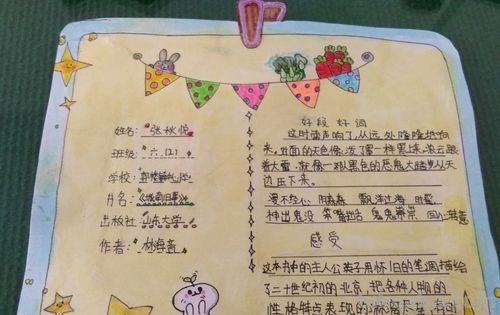 姓名: 张秋悦
班级: 六.(2)
学校:
书名: 《城南旧事》
出版社: 山东大学
作者: 林海音
好段 好词
这时雷声响了,从远处隆隆地响
来。对面的天色像泼了墨一样黑上来,浓云跟
着大雷,就像一队黑色的恶鬼大踏步从天
边压下来。
漫不经心 阴森森 飘洋过海
神出鬼没 鬼鬼祟祟 回心转意
感受
这本书中的主人公英子用怀旧的笔调描绘
了二十世纪初的北京,把各种人物的
性格特点表现的淋漓尽至,有